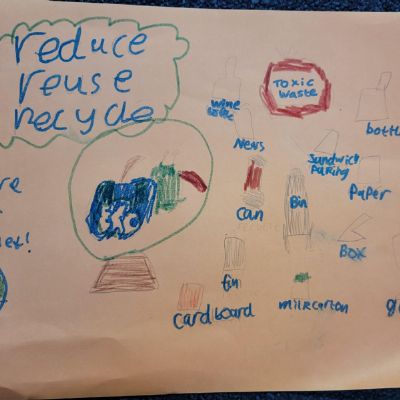 reduce
reuse
recycle
Toxic
waste
wine
bottle
News
Sandwich
paking
Paper
can
Bin
BOX
tin
cardboard
milkcarton